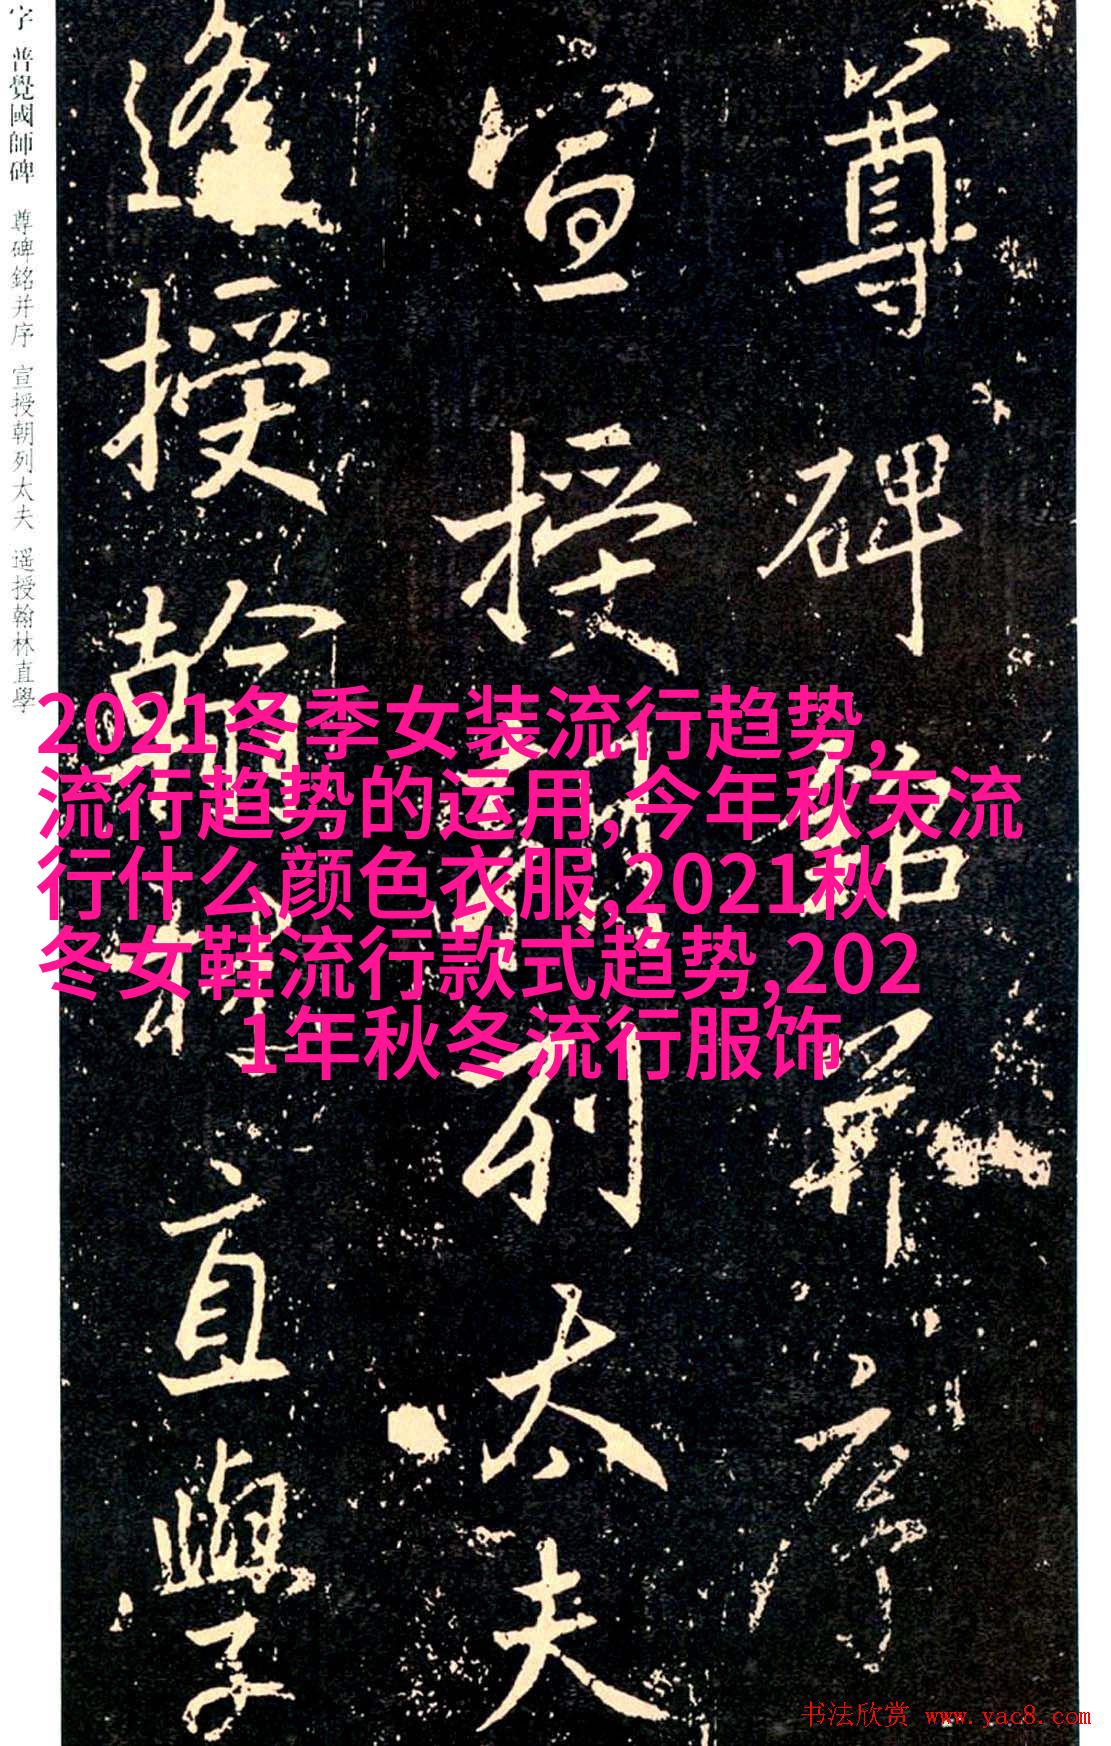 字 普覺國師碑 尊碑銘并序 宣授朝列太夫 遥授翰林直學
尊碑銘并序
宣授朝列太夫
遥授翰林直學
2021冬季女装流行趋势,
流行趋势的运用,今年秋天流
行什么颜色衣服,2021秋
冬女鞋流行款式趋势,202
1年秋冬流行服饰
书法欣赏 www.yac8.com